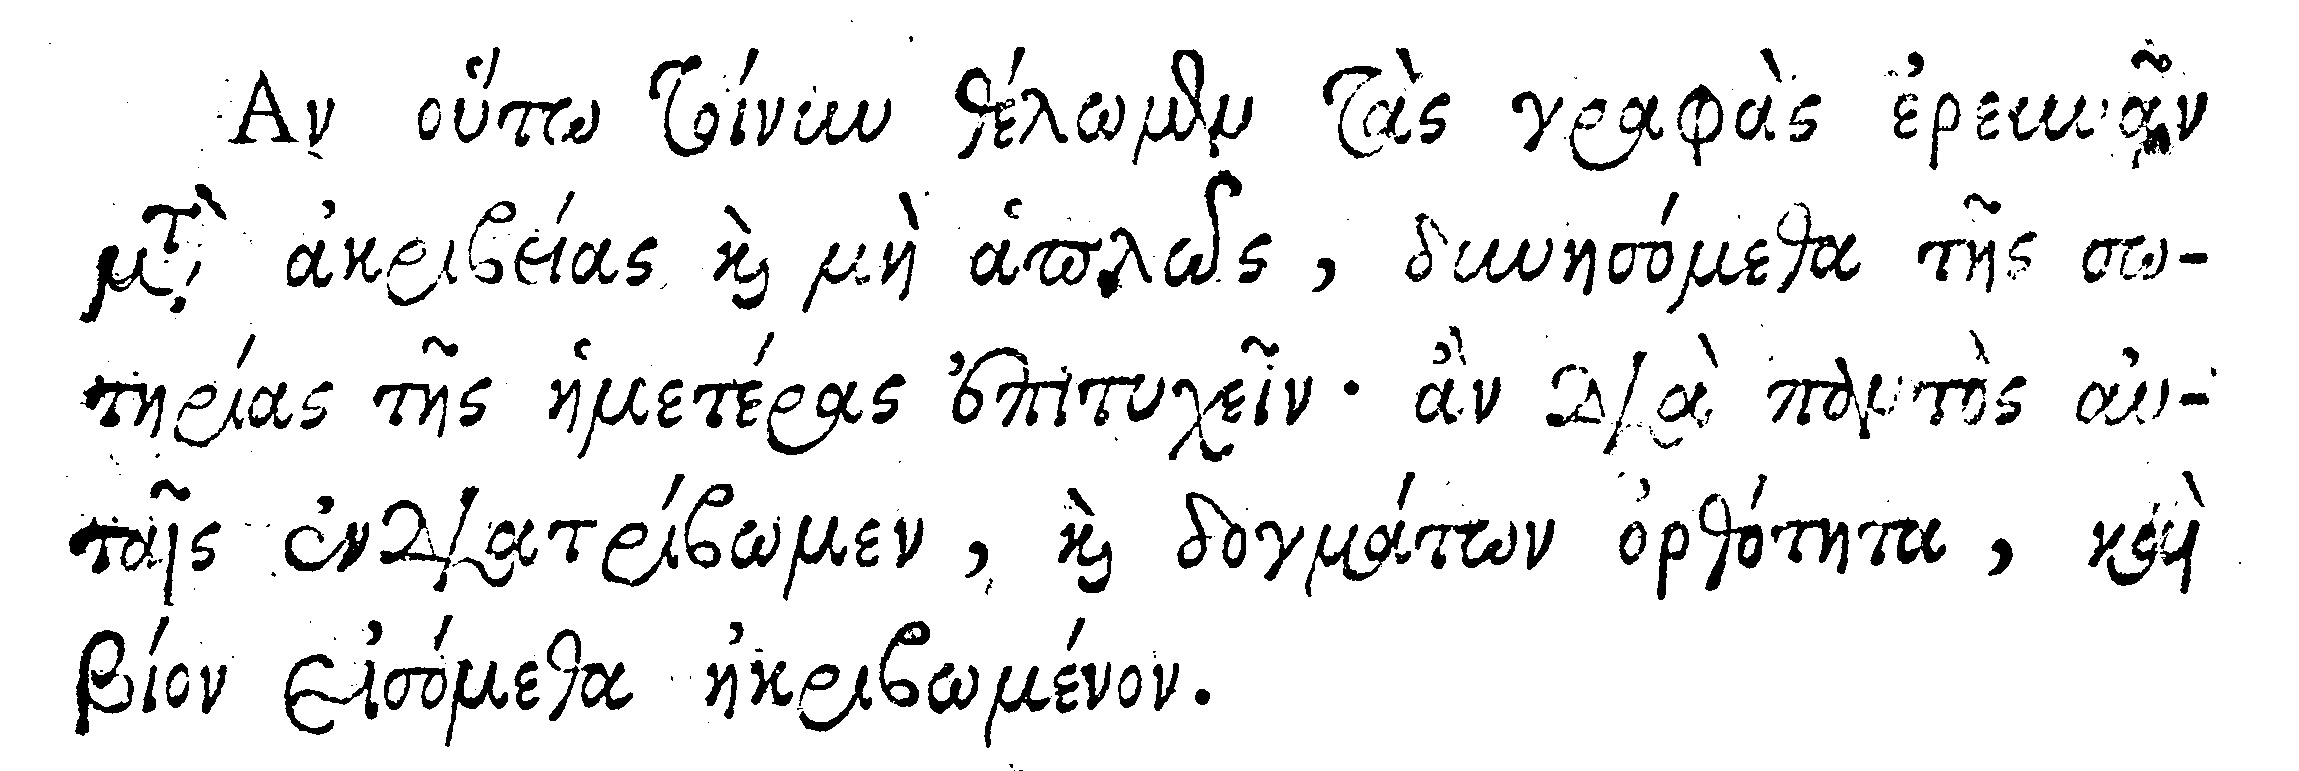 Αν οὕτω τοίνυν θέλωμεν τὰς γραφὰς ἐρευνᾷν
μετὰ ἀκριβείας καὶ μὴ ἁπλῶς, δυνησόμεθα τῆς σω-
τηρίας τῆς ἡμετέρας ἐπιτυχεῖν· ἂν διὰ παντὸς αὐ-
ταῖς ἐνδιατρίβωμεν, καὶ δογμάτων ὀρθότητα, καὶ
βίον εἰσόμεθα ἠκριβωμένον.